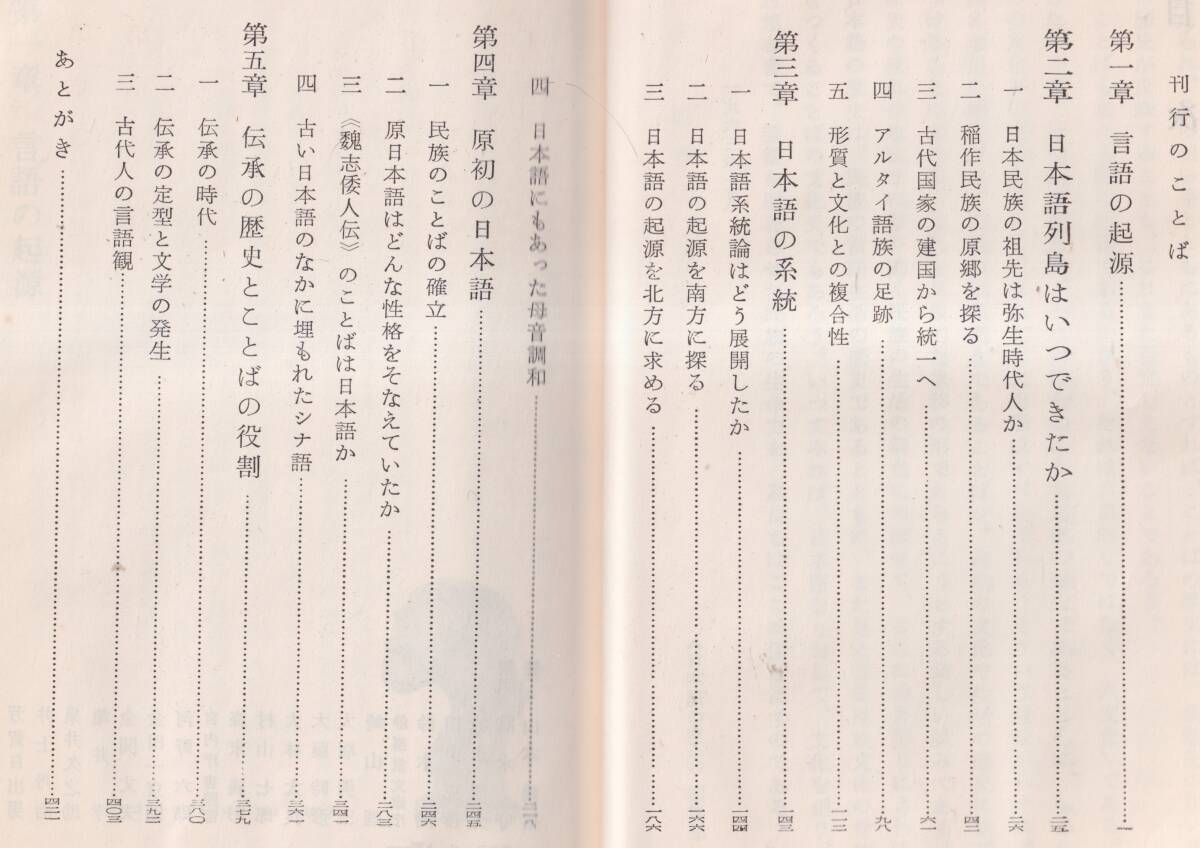 刊行のことば
第一章 言語の起源……一
第二章 日本語列島はいつできたか……二五
一 日本民族の祖先は弥生時代人か……二六
二 稲作民族の原郷を探る……四二
三 古代国家の建国から統一へ……六一
四 アルタイ語族の足跡……九八
五 形質と文化との複合性……一一二
第三章 日本語の系統……一四三
一 日本語系統論はどう展開したか……一四四
二 日本語の起源を南方に探る……一六六
三 日本語の起源を北方に求める……一八六
四 日本語にもあった母音調和……二一八
第四章 原初の日本語……二四五
一 民族のことばの確立……二四六
二 原日本語はどんな性格をそなえていたか……二八三
三 《魏志倭人伝》のことばは日本語か……三四一
四 古い日本語のなかに埋もれたシナ語……三六一
第五章 伝承の歴史とことばの役割……三七九
一 伝承の時代……三八〇
二 伝承の定型と文学の発生……三九二
三 古代人の言語観……四〇三
あとがき……四二一